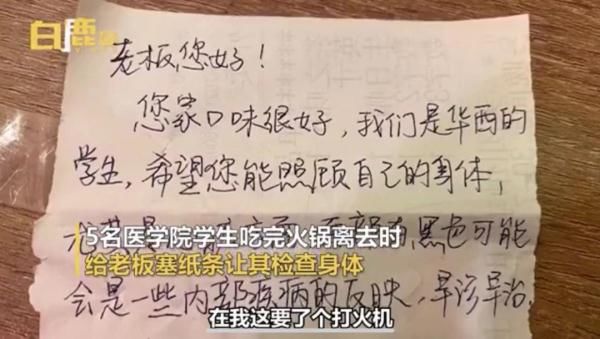 白鹿
老板,您好!
您家口味很好,我们是华西的
学生,希望您能照顾自己的身体,
黑色可能
5名医学院学生吃完火锅离去时
给老板塞纸条让其检查身体
会是一些内部疾病的反映,早诊早治,
在我这要了个打火机